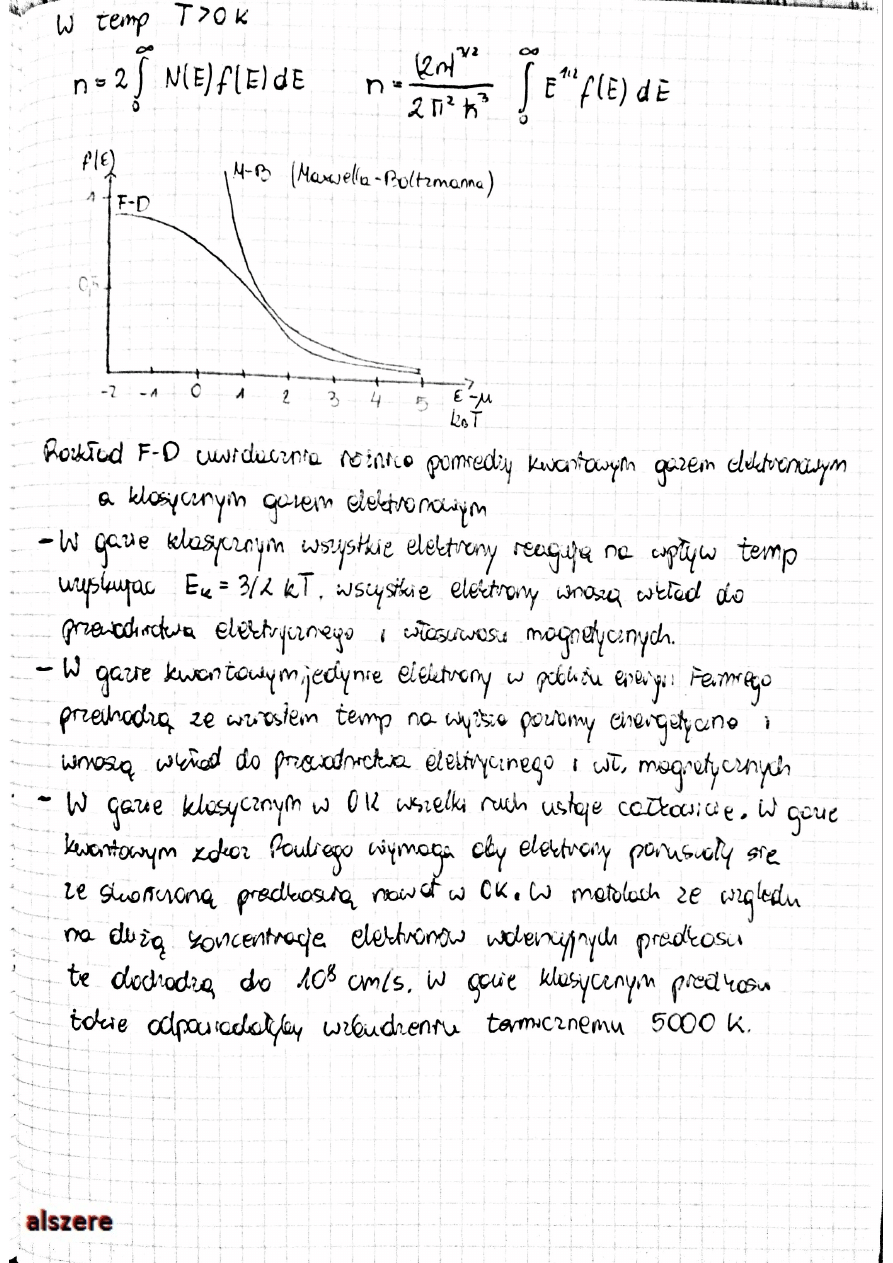 W temp T>0K
n = 2∫₀^∞ N(E)f(E)dE n = (2m)^3/2 / 2π²ħ³ ∫₀^∞ E^1/2 f(E) dE
f(E)
M-B (Maxwella-Boltzmanna)
1
F-D
0,5
-2 -1 0 1 2 3 4 5 E-μ
k_BT
Rozkład F-D uwidacznia różnice pomiędzy kwantowym gazem elektronowym
a klasycznym gazem elektronowym
- W gazie klasycznym wszystkie elektrony reagują na wpływ temp
uzyskując Eₖ = 3/2 kT. wszystkie elektrony wnoszą wkład do
przewodnictwa elektrycznego i własności magnetycznych.
- W gazie kwantowym, jedynie elektrony w pobliżu energii Fermiego
przechodzą ze wzrostem temp na wyższe poziomy energetyczne i
wnoszą wkład do przewodnictwa elektrycznego i wł. magnetycznych
- W gazie klasycznym w 0K wszelki ruch ustaje całkowicie. W gazie
kwantowym zakaz Pauliego wymaga aby elektrony poruszały się
ze skończoną prędkością nawet w 0K. W metalach ze względu
na dużą koncentrację elektronów walencyjnych prędkości
te dochodzą do 10⁸ cm/s. W gazie klasycznym prędkości
takie odpowiadałyby wzbudzeniu termicznemu 5000 K.
alszere